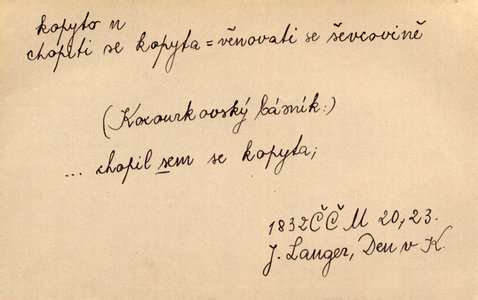 kopyto n
chopiti se kopyta = věnovati se ševcovině
(Kocourkovský básník:)
... chopil sem se kopyta;
1832 ČČM 20, 23.
J. Langer, Den v K.